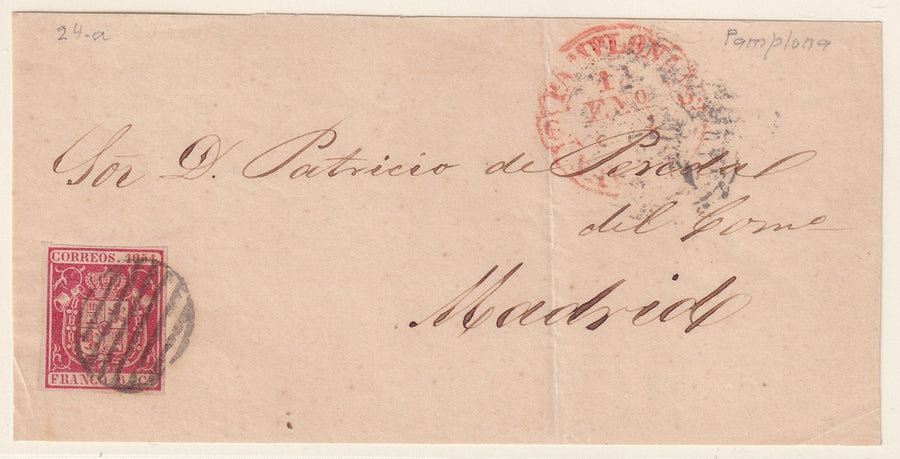 24-a
Pamplona
PAMPLONA
1
ENO
Sor D. Patricio de
del Come
Madrid
CORREOS. 1854
FRANCO 6 Cs